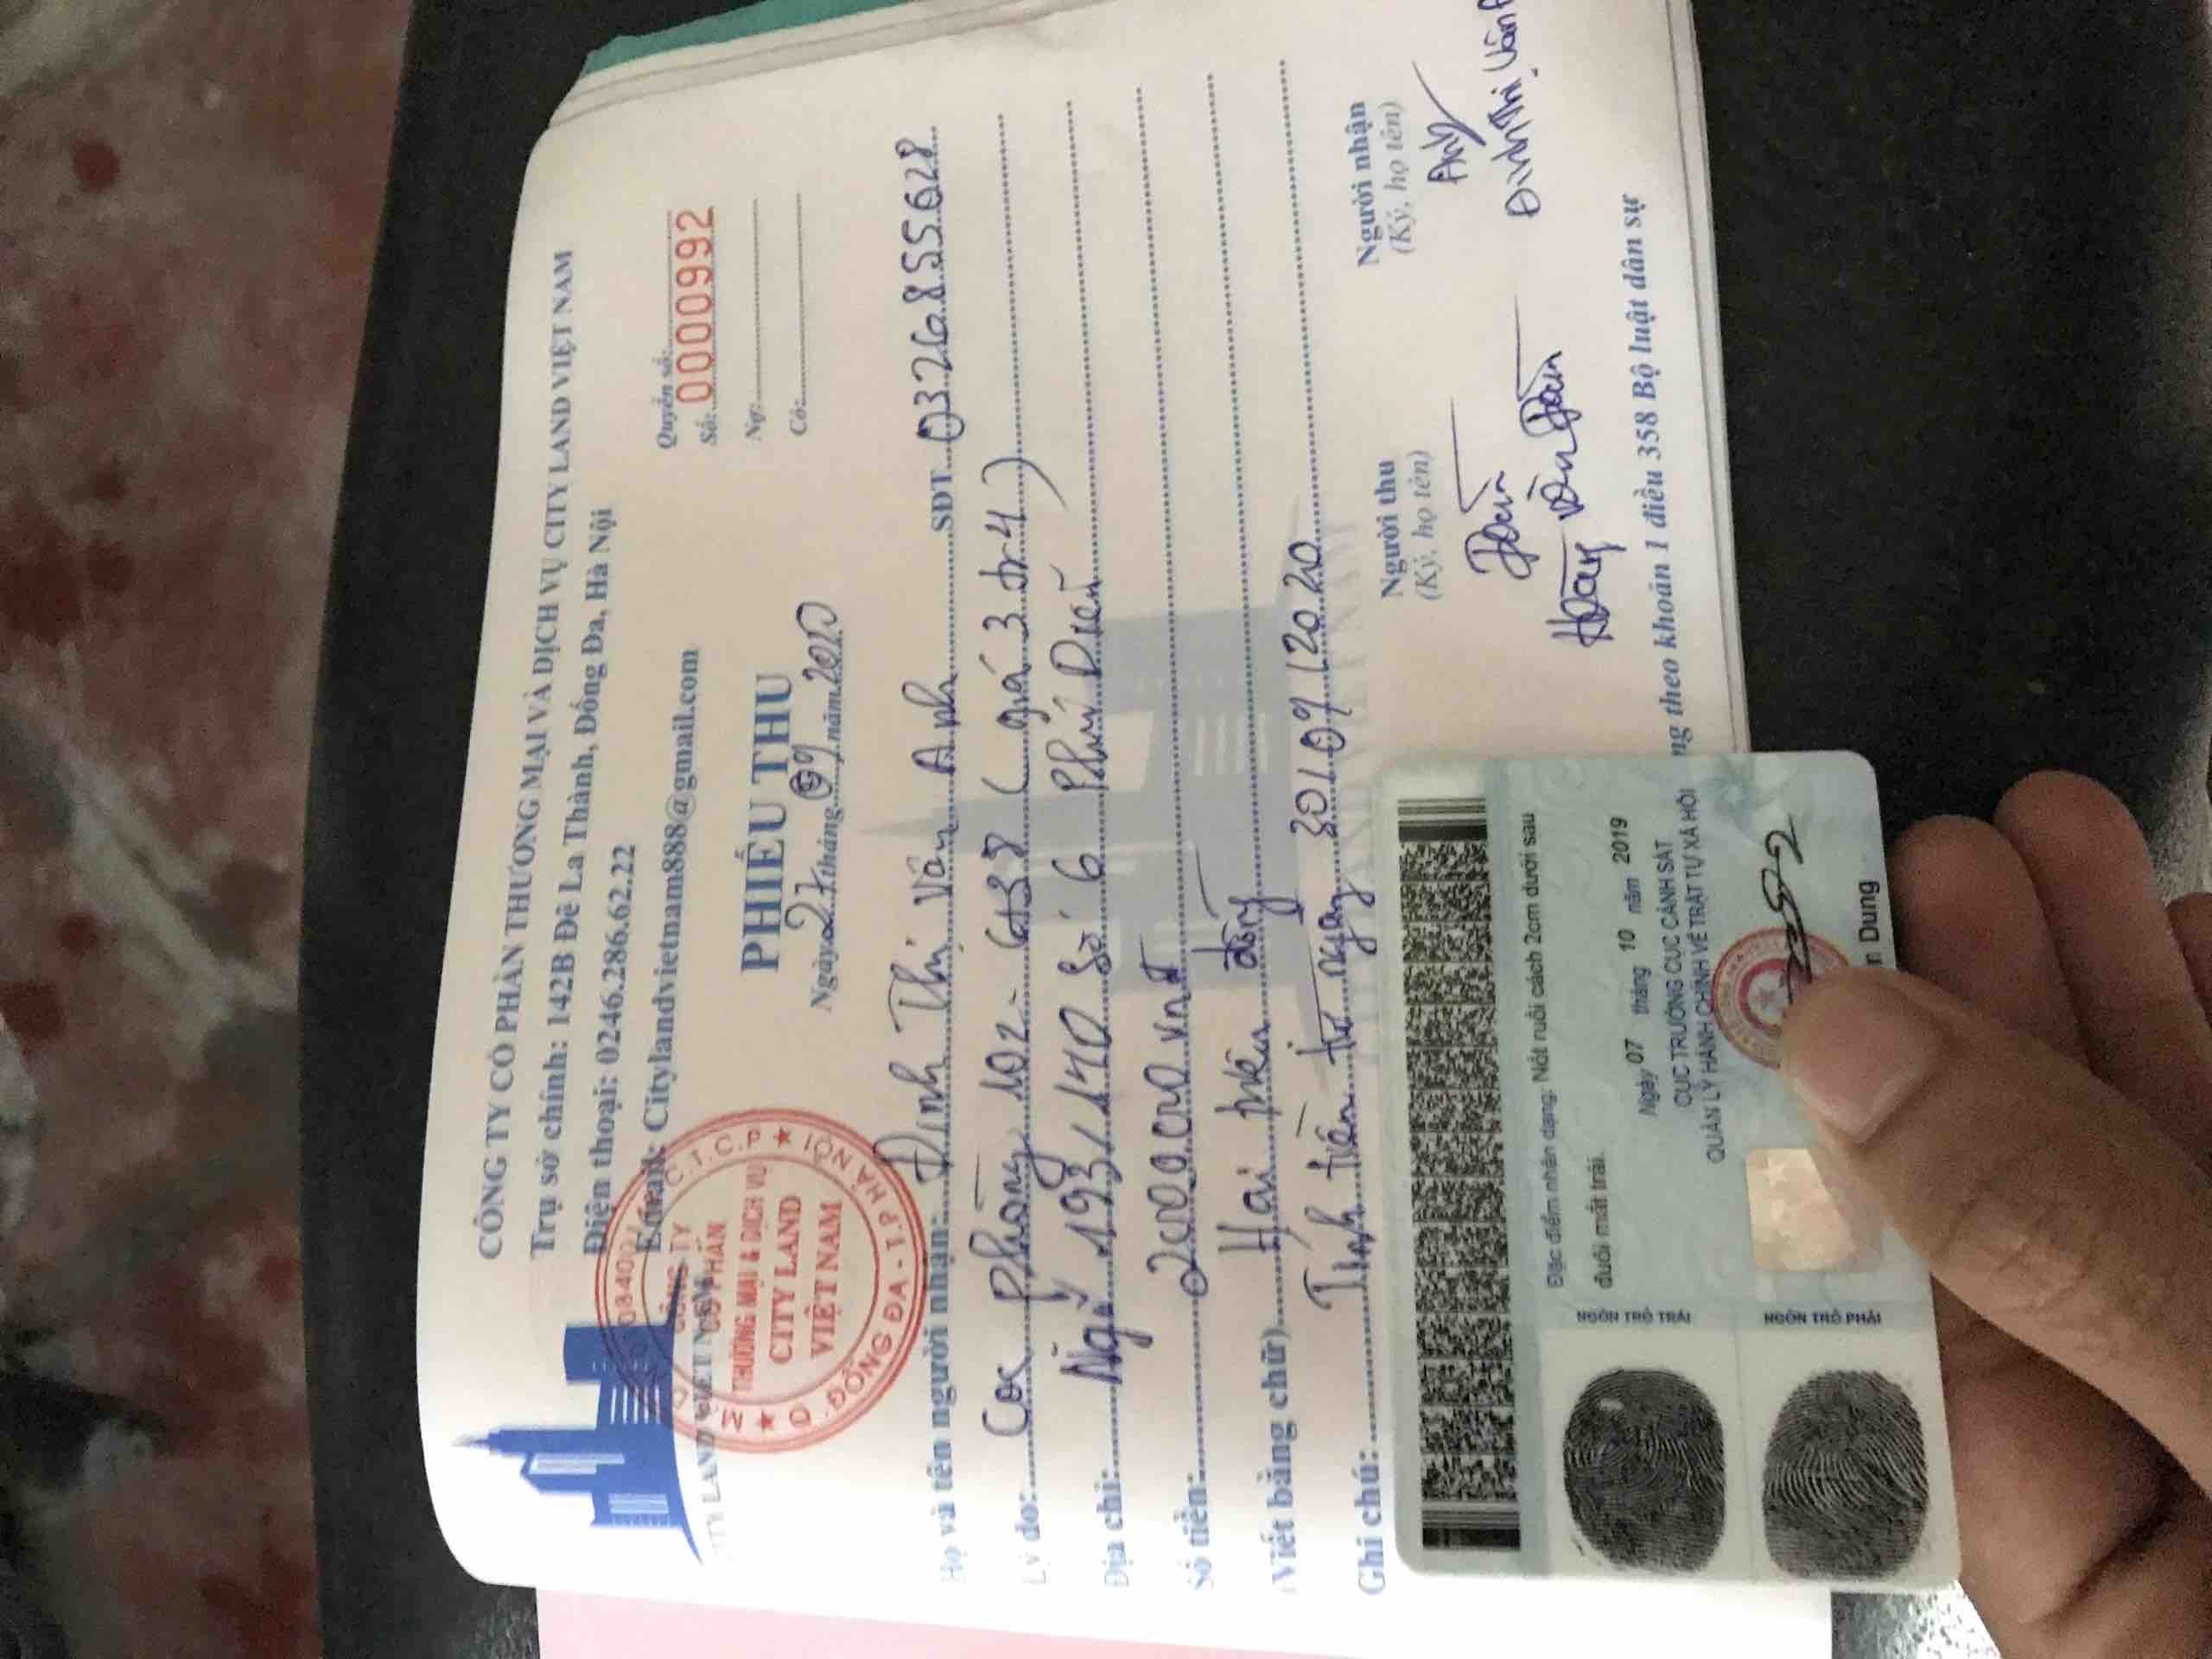 CÔNG TY CỔ PHẦN THƯƠNG MẠI VÀ DỊCH VỤ CITY LAND VIỆT NAM
Trụ sở chính: 142B Đê La Thành, Đống Đa, Hà Nội
Điện thoại: 0246.286.62.22
Email: Citylandvietnam888@gmail.com
CITY LAND VIỆT NAM
C.T.C.P
CÔNG TY
CỔ PHẦN
THƯƠNG MẠI & DỊCH VỤ
CITY LAND
VIỆT NAM
Q. ĐỐNG ĐA - T.P HÀ NỘI
Quyển số:
Số: 0000992
Nợ:
Có:
PHIẾU THU
Ngày 27 tháng 09 năm 2020
Họ và tên người nhận: Đinh Thị Vân Anh SĐT 0326855628
Lý do: Cọc phòng 102 - (giá 3tr4)
Địa chỉ: Ngõ 193/140 Số 6 Phú Diễn
Số tiền: 2000.000 vnđ
(Viết bằng chữ) Hai triệu đồng
Ghi chú: Tính tiền từ ngày 30/09/2020
Người thu
(Ký, họ tên)
Hoàng Văn
Người nhận
(Ký, họ tên)
Đinh Thị Vân
theo khoản 1 điều 358 Bộ luật dân sự
Đặc điểm nhân dạng: Nốt ruồi cách 2cm dưới sau
đuôi mắt trái.
Ngày 07 tháng 10 năm 2019
CỤC TRƯỞNG CỤC CẢNH SÁT
QUẢN LÝ HÀNH CHÍNH VỀ TRẬT TỰ XÃ HỘI
Dung
NGÓN TRỎ TRÁI
NGÓN TRỎ PHẢI